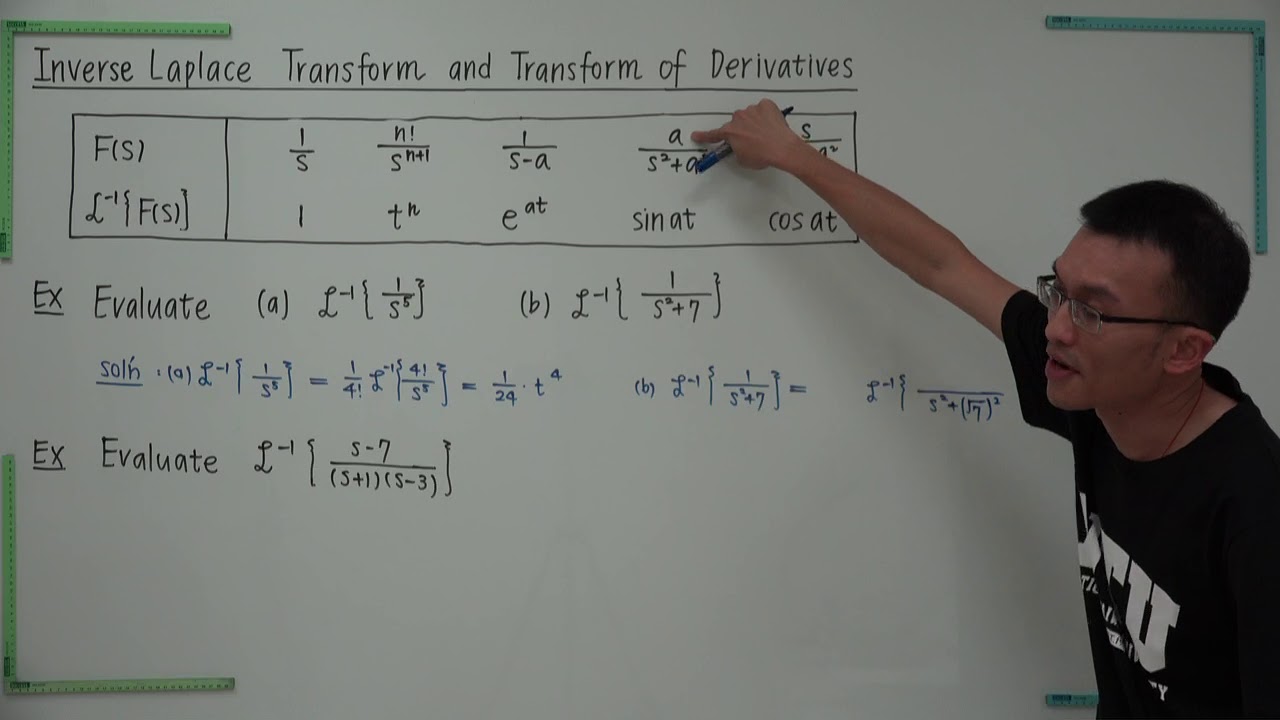 Inverse Laplace Transform and Transform of Derivatives
F(s) 1/s n!/s^(n+1) 1/(s-a) a/(s²+a s/ a²
ℒ⁻¹{F(s)} 1 tⁿ e^(at) sin at cos at
Ex Evaluate (a) ℒ⁻¹{1/s⁵} (b) ℒ⁻¹{1/(s²+7)}
Sol'n : (a) ℒ⁻¹{1/s⁵} = 1/4! ℒ⁻¹{4!/s⁵} = 1/24 · t⁴ (b) ℒ⁻¹{1/(s²+7)} = ℒ⁻¹{ /(s²+(√7)²)
Ex Evaluate ℒ⁻¹{(s-7)/((s+1)(s-3))}